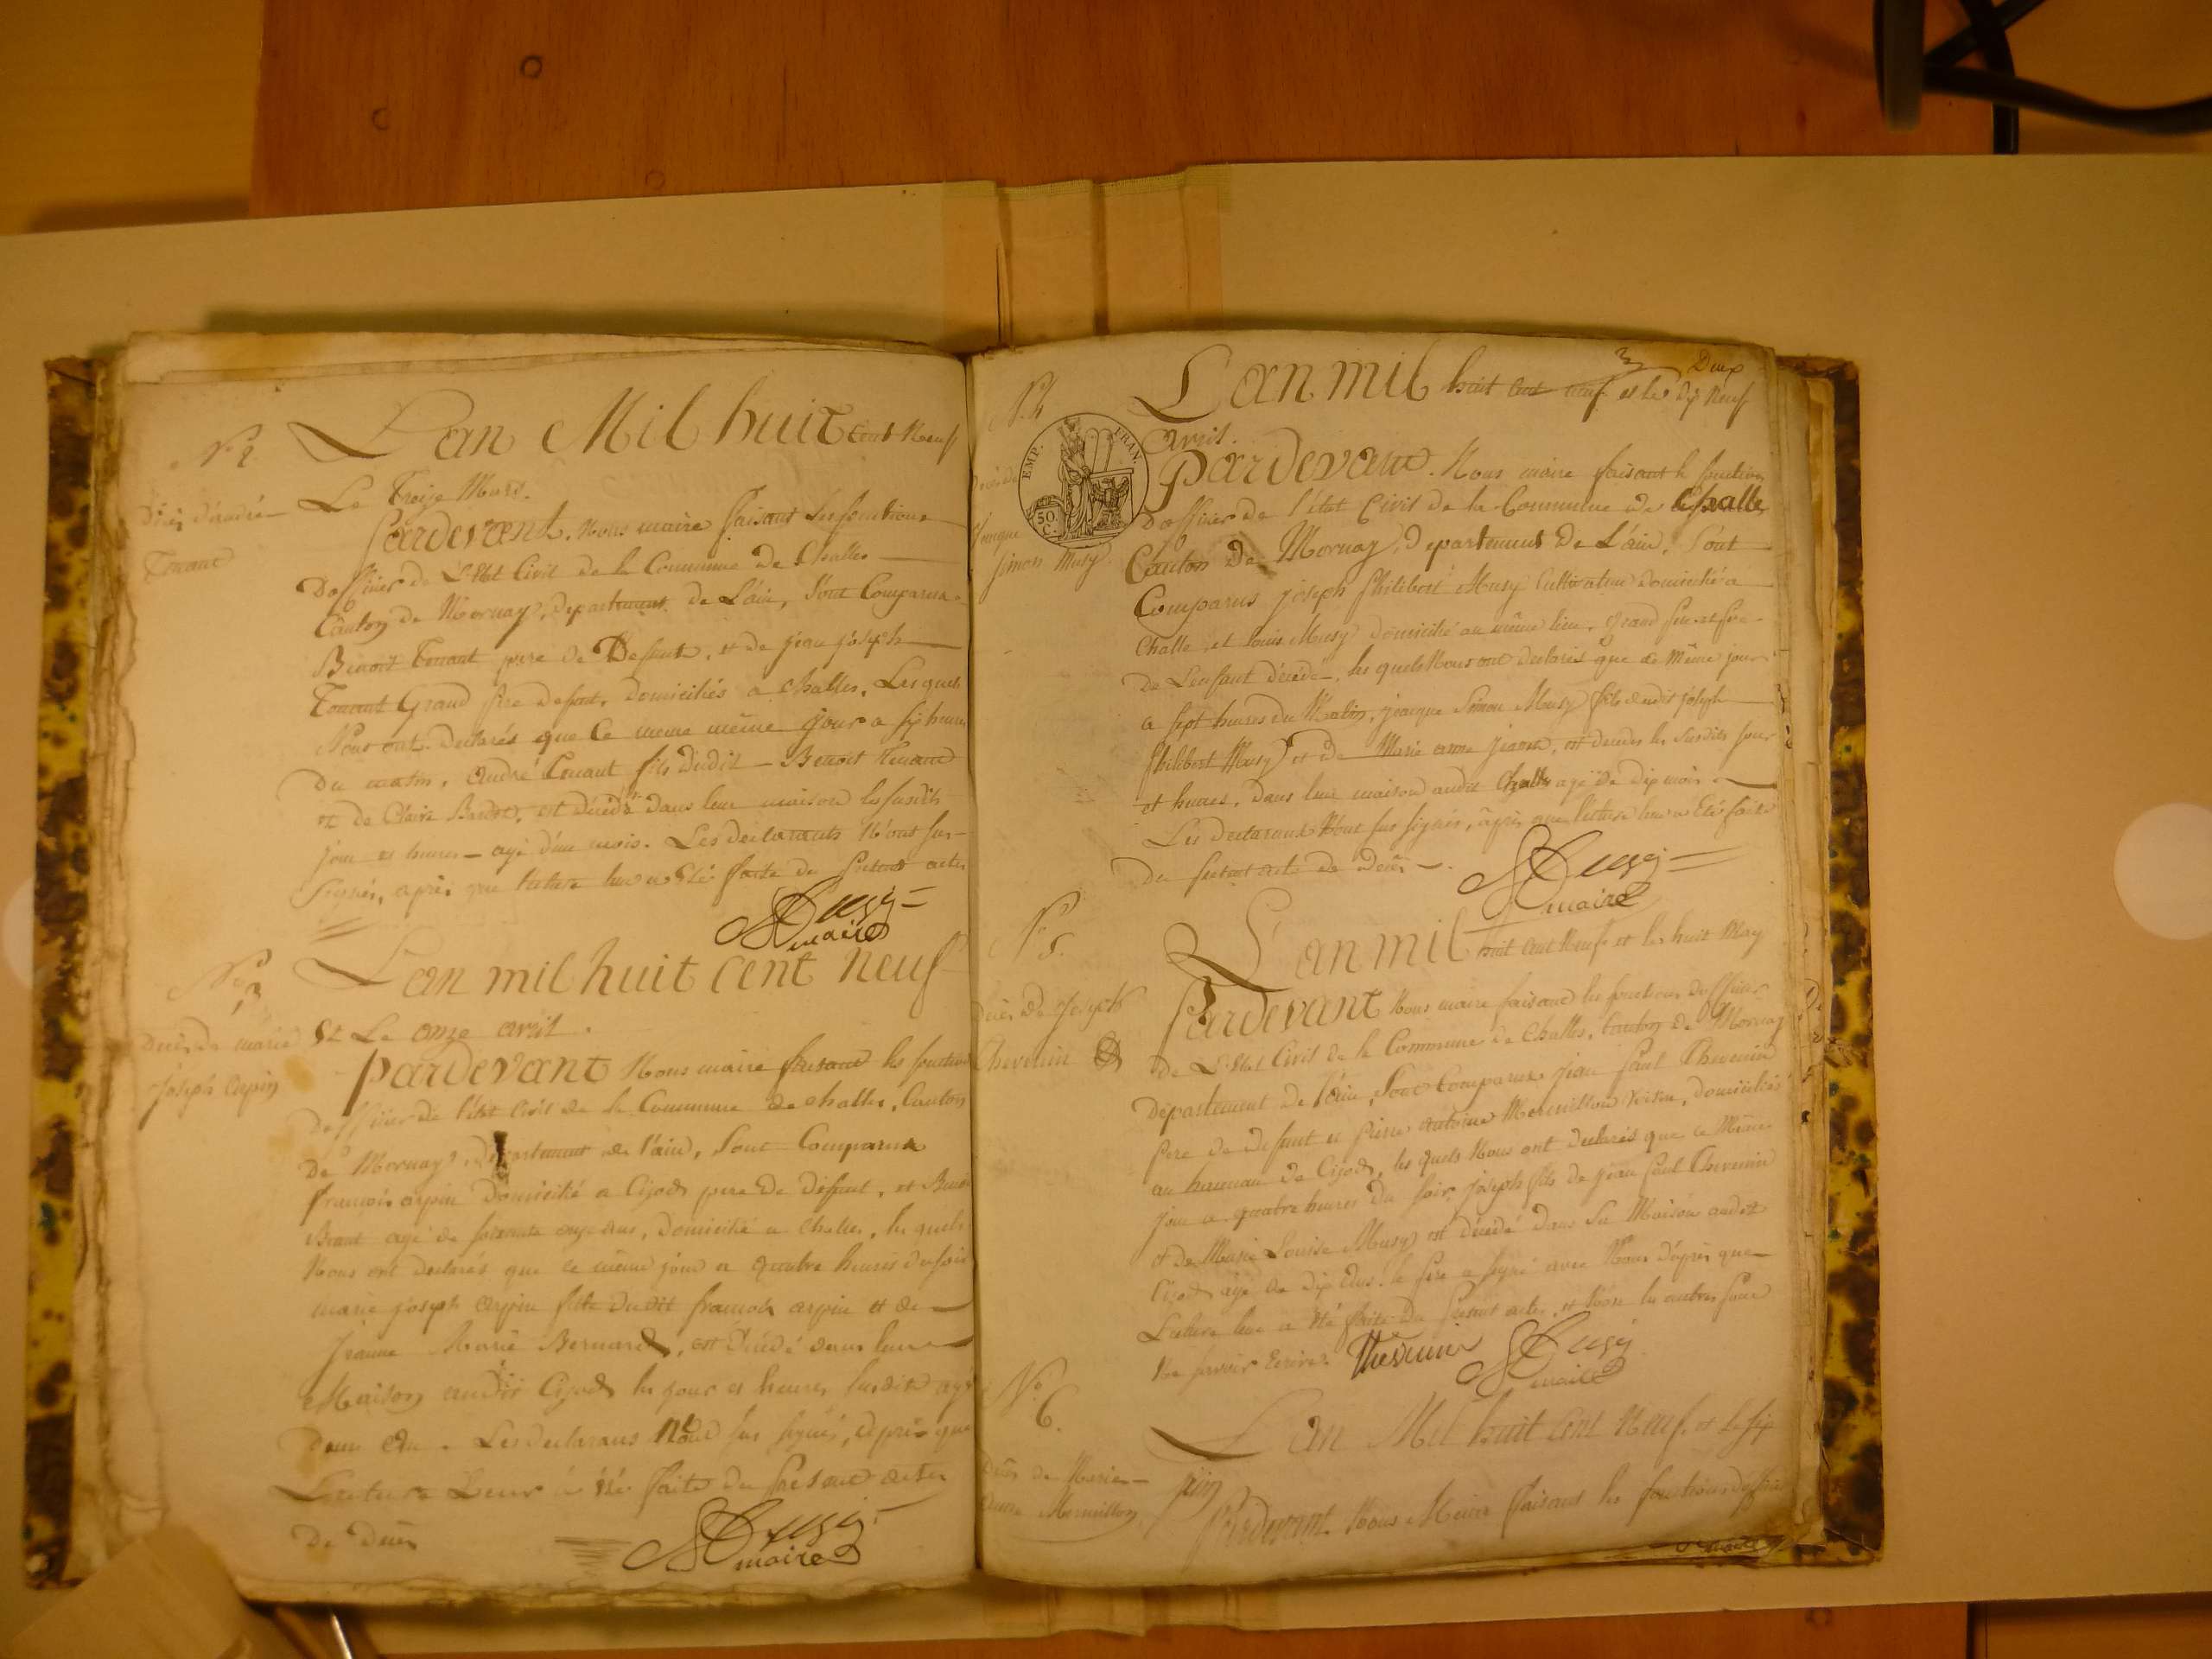 N.° 2
L'an Mil huit cent Neuf
Le Treize Mars.
Décès d'andré
Tenant
Pardevant, Nous maire faisant les fonctions
D'officier de L'Etat Civil de la Commune de Challes
Canton de Mornay, departement de L'ain, Sont Comparus
Benoit Tenant pere de Defunt, et de jean joseph
Tenant Grand Pere defunt, domiciliés a Challes, Lesquels
Nous ont declarés que Ce meme même jour a six heures
Du matin, André Tenant fils dudit Benoit Tenant
et de Claire Bardet, est décédé Dans leur maison les susdits
jour et heures agé d'un mois. Les declarants N'ont su
Signés, après que lecture leur a Eté faite du present acte
Musy
maire
N.° 3
L'an mil huit cent neuf
Et Le onze avril.
Décès de marie
Joseph arpin
Pardevant Nous maire faisant les fonctions
D'officier de l'état Civil de la Commune de challes, Canton
De Mornay, département de l'ain, Sont Comparus
francois arpin Domicilié a Cizod pere de defunt, et
agé de soixante onze ans, Domicilié a Challes, les quels
Nous ont declarés que ce même jour a quatre heures du soir
marie joseph arpin fille dudit francois arpin et de
Jeanne Marie Bernard, est décédé dans leur
Maison audit Cizod les jour et heures susdite agé
D'un an. Les declarans N'ont su signés, après que
Lecture Leur a été faite du present acte
De Décès
Musy
maire
3 Deux
N. 4
L'an mil huit cent neuf et le dix Neuf
Avril.
EMP. FRAN.
50 C.
Jacque
Simon Musy
Pardevant. Nous maire faisant les fonctions
D'officier de l'état Civil de la Commune de Challe
Canton De Mornay, departement De L'ain, Sont
Comparus joseph Philibert Musy Cultivateur domicilié a
Challe, et Louis Musy domicilié au même lieu, grand pere et pere
De L'enfant décédé, les quels Nous ont declarés que ce Même jour
a sept heures du Matin, jacque Simon Musy fils dudit joseph
Philibert Musy et de Marie anne, est décédé les susdits jour
et heures, Dans leur maison audit Challe agé De dix mois
Les declarans N'ont su signés, après que lecture leur a Eté faite
Du present acte De Décès.
Musy
maire
N.° 5.
L'an mil huit cent Neuf et les huit May
Décès de Joseph
Chevenin
Pardevant Nous maire faisant les fonctions D'officier
De L'Etat Civil de la Commune de Challes, Canton de Mornay
Département de l'ain, Sont Comparus jean Paul Chevenin
Pere de defunt et Pierre antoine Mermillon voisin, domiciliés
au hameau de Cizod, les quels Nous ont declarés que ce Même
jour a quatre heures du soir, joseph fils de jean Paul Chevenin
et de Marie Louise Musy est décédé dans Sa Maison audit
Cizod agé de dix ans. le Pere a signé avec Nous d'après que
Lecture leur a été faite Du present acte, et Non les autres pour
Ne savoir Ecrire.
Chevenin
Musy
maire
N.° 6.
L'an Mil huit Cent Neuf et le six
juin
Décès de Marie
Mermillon
Pardevant Nous Maire faisant les fonctions d'officier